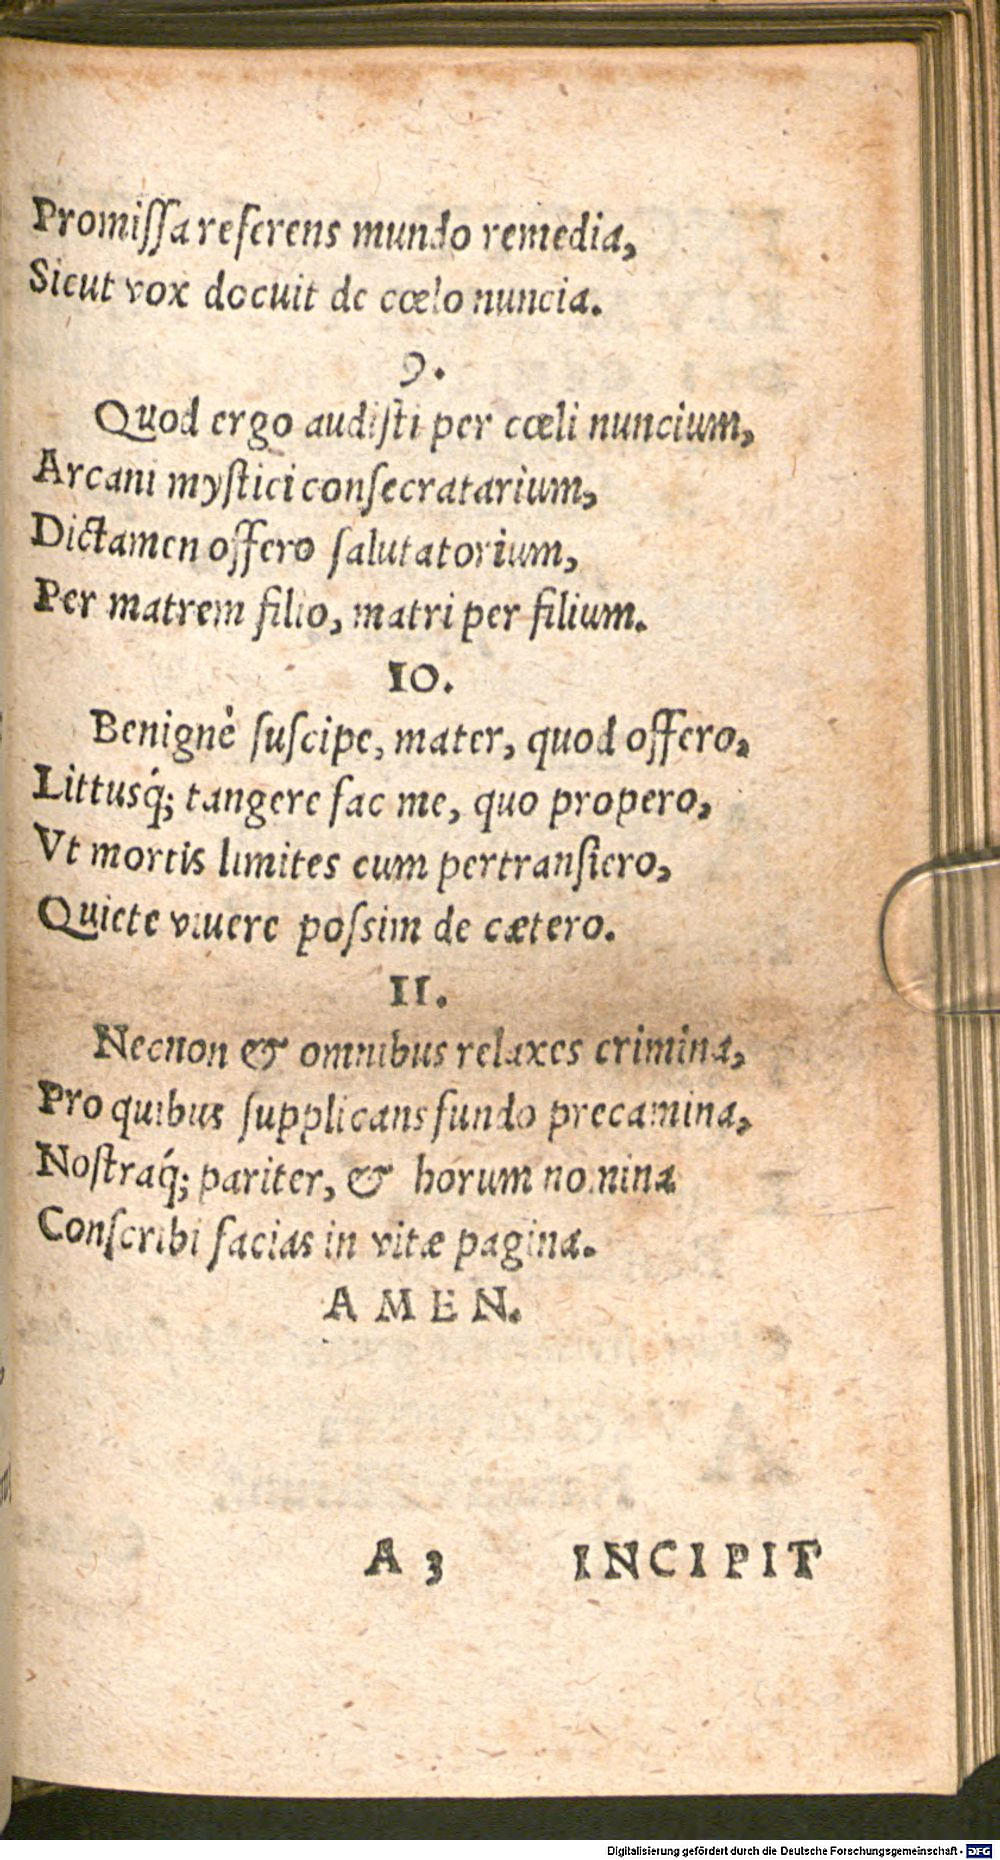 Promiſſa referens mundo remedia,
Sicut vox docuit de cœlo nuncia.
9.
Quod ergo audiſti per cœli nuncium,
Arcani myſtici conſecratarium,
Dictamen offero ſalutatorium,
Per matrem filio, matri per filium.
10.
Benignè ſuſcipe, mater, quod offero,
Littusq́; tangere fac me, quo propero,
Vt mortis limites cum pertranſiero,
Quiete viuere poſsim de cætero.
11.
Necnon & omnibus relaxes crimina,
Pro quibus ſupplicans fundo precamina,
Noſtraq́; pariter, & horum nomina
Conſcribi facias in vitæ pagina.
AMEN.
A 3 INCIPIT
Digitalisierung gefördert durch die Deutsche Forschungsgemeinschaft - DFG